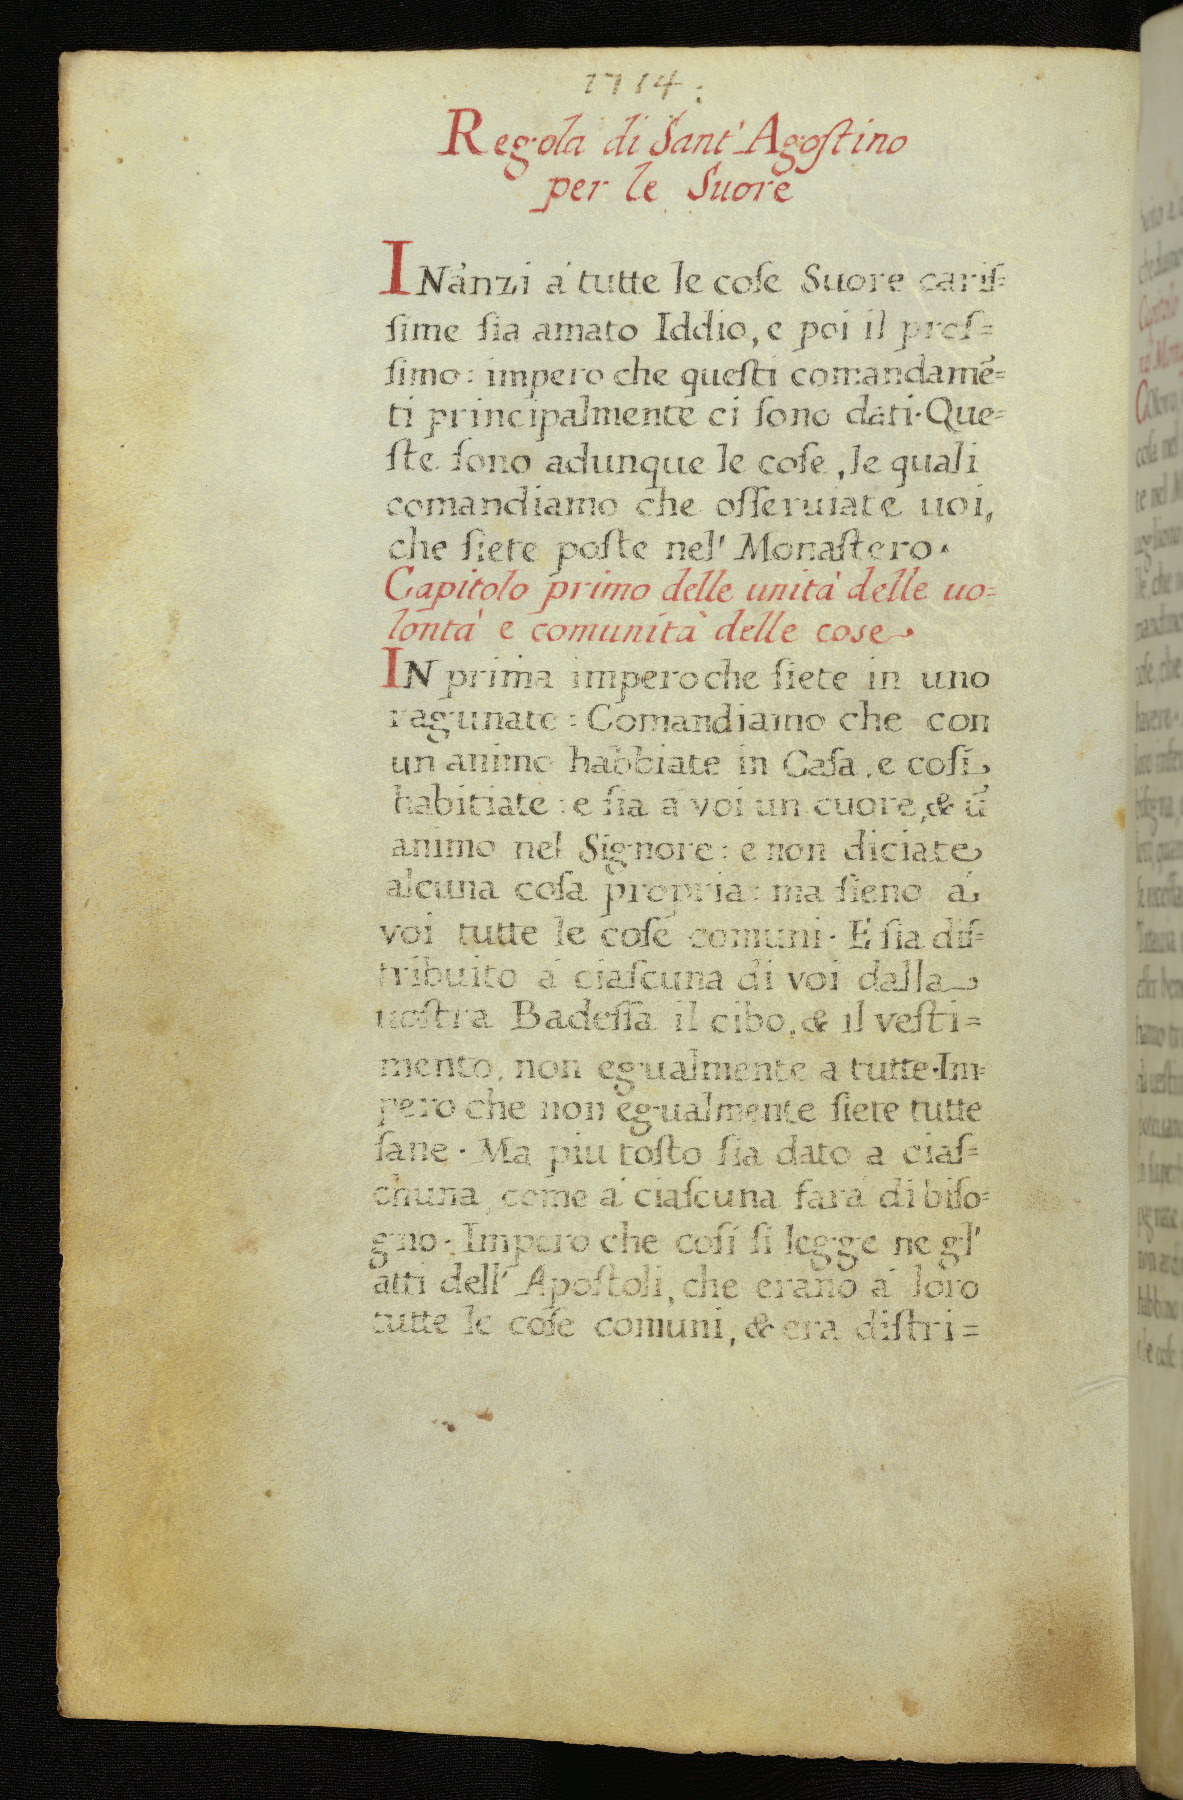 1714:
Regola di Sant' Agoſtino
per le Suore
INánzi á tutte le coſe Suore cariſ=
ſime ſia amato Iddio, e poi il proſ=
ſimo: impero che queſti comandamē=
ti principalmente ci ſono dati. Que=
ſte ſono adunque le coſe, le quali
comandiamo che oſſeruiate uoi,
che ſiete poſte nel' Monaſtero.
Capitolo primo delle unitá delle uo=
lontá e comunitá delle cose
IN prima impero che ſiete in uno
ragunate: Comandiamo che con
un animo habbiate in Caſa, e coſi
habitiate: e ſia á voi un cuore, & ū
animo nel Signore: e non diciate
alcuna coſa propria: ma ſieno á
voi tutte le coſe comuni. E ſia diſ=
tribuito á ciaſcuna di voi dalla
uoſtra Badeſſa il cibo, & il veſti=
mento, non egualmente a tutte. Im=
pero che non egualmente ſiete tutte
ſane. Ma piu toſto ſia dato a ciaſ=
chuna, come á ciaſcuna fará di biſo=
gno. Impero che coſi ſi legge ne gl'
atti dell' Apoſtoli, che erano á loro
tutte le coſe comuni, & era diſtri=